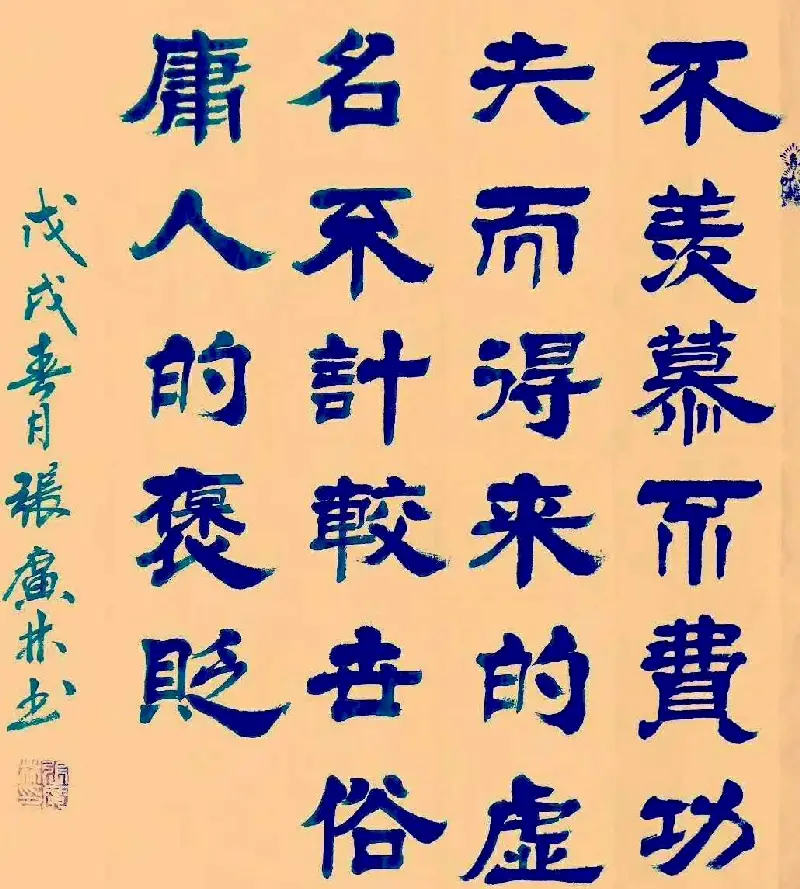 不羨慕不費功
夫而得来的虚
名不計較世俗
庸人的褒貶
戊戌春月張廣林书